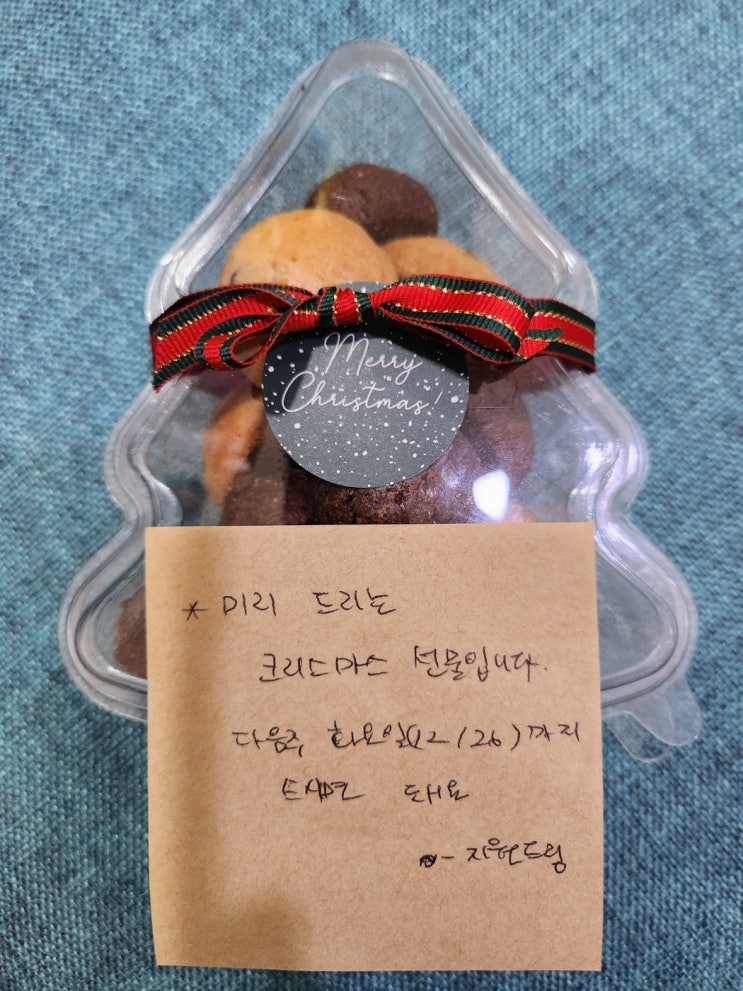 Merry
Christmas!
* 미리 드리는
크리스마스 선물입니다.
다음주, 화요일(12/26)까지
드시면 돼요
- 지원드림